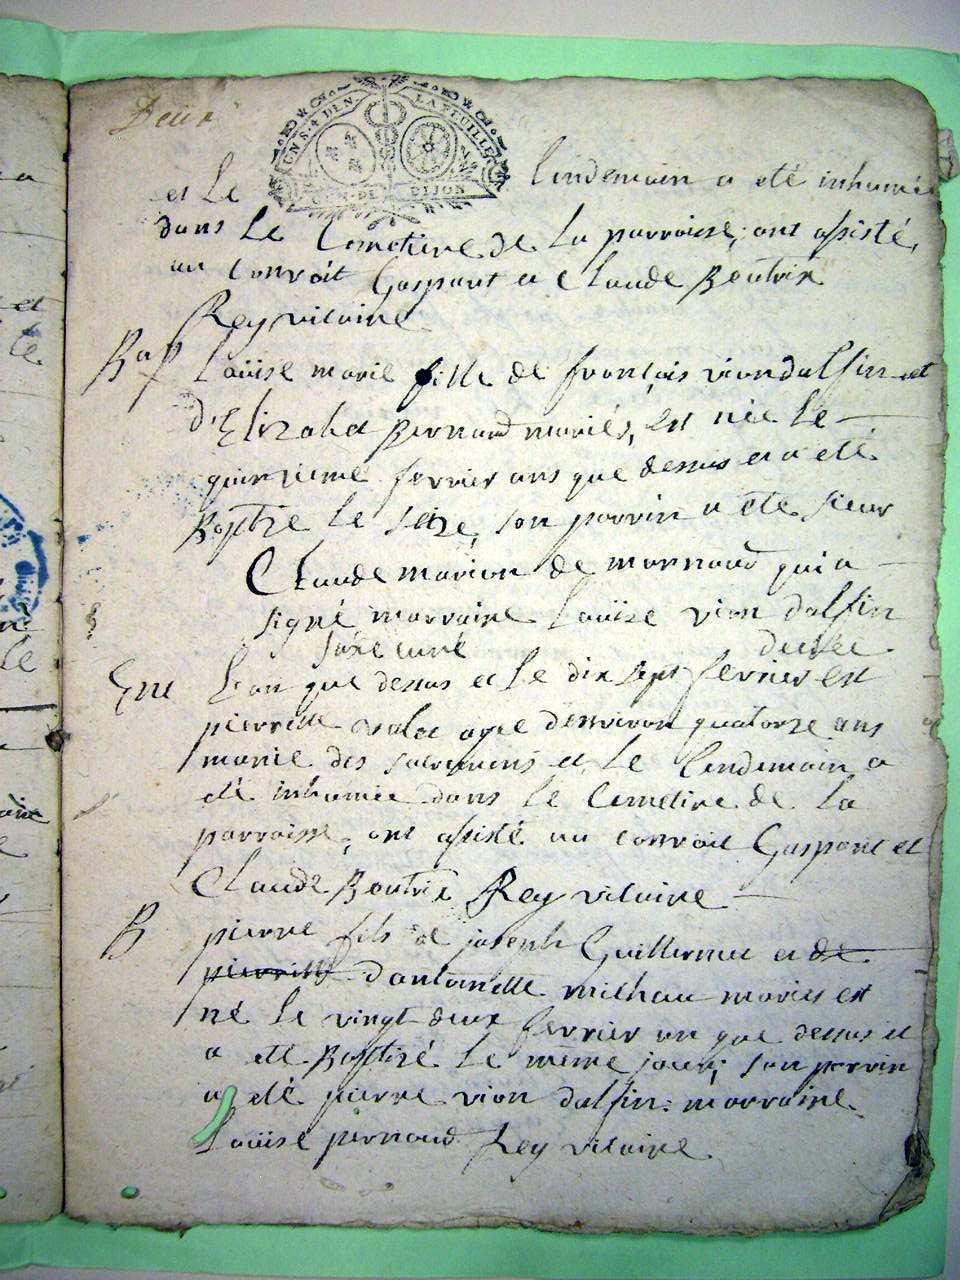 Deux
UN S. 4 DEN. LA FEUILLE
GEN. DE DIJON
et Le lendemain a eté inhumé
dans Le Cemetiere de La parroisse, ont assisté,
au Convoit Gaspart et Claude Boutrix
Rey vicaire
Bap Loüise marie fille de françois viondalfin et
d'Elizabet pernaud mariés, Est née Le
quinzieme fevrier ans que dessus et a eté
Baptizé Le seize, son parrin a eté sieur
Claude marion de mornaud qui a
signé marraine Loüise vion dalfin
curé
Ent L'an que dessus et Le dix sept fevrier est
pierrette agee d'environ quatorze ans
munie des sacremens et Le lendemain a
eté inhumée dans Le Cemetire de La
parroisse, ont assisté au convoit Gaspart et
Claude Boutrix Rey vicaire
B pierre fils de joseph Guillermet et de
pierrette d'antoinette milhau mariés est
né Le vingt deux fevrier an que dessus et
a eté Baptizé Le meme jour; son parrin
a eté pierre vion dalfin: marraine
Loüise pernaud Rey vicaire